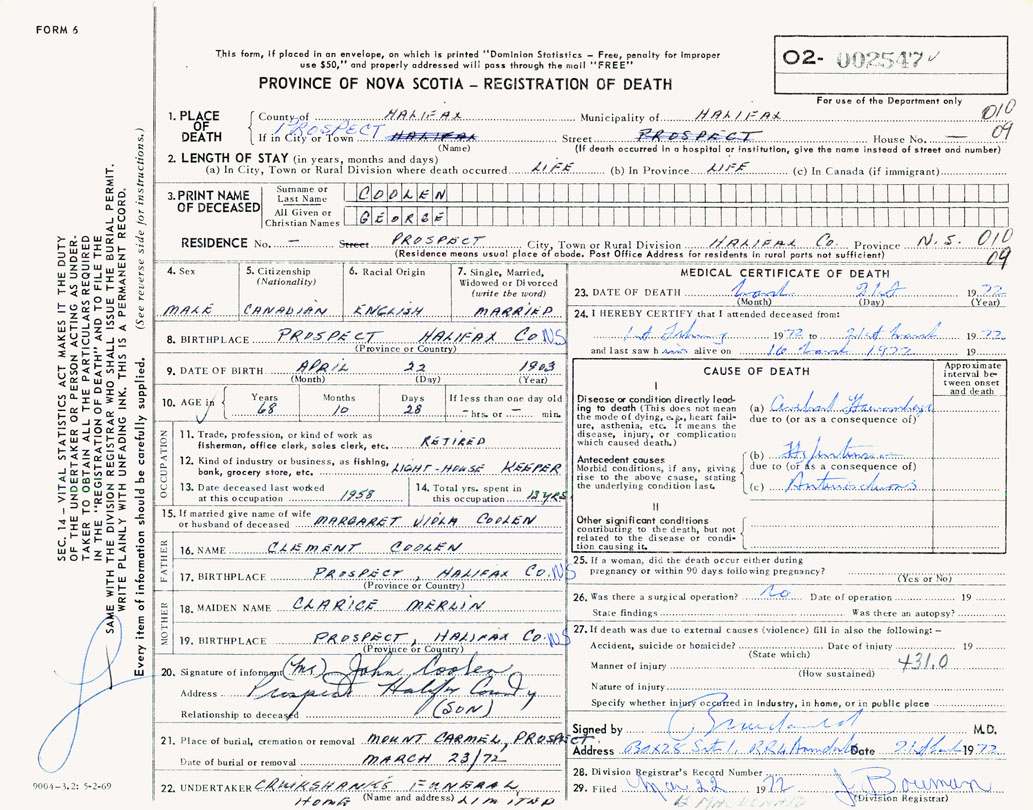 FORM 6
This form, if placed in an envelope, on which is printed "Dominion Statistics – Free, penalty for improper
use $50," and properly addressed will pass through the mail "FREE"
PROVINCE OF NOVA SCOTIA – REGISTRATION OF DEATH
02- 002547
For use of the Department only
010
09
1. PLACE OF DEATH
County of HALIFAX Municipality of HALIFAX
If in City or Town PROSPECT HALIFAX Street PROSPECT House No. —
(Name) (If death occurred in a hospital or institution, give the name instead of street and number)
2. LENGTH OF STAY (in years, months and days)
(a) In City, Town or Rural Division where death occurred LIFE (b) In Province LIFE (c) In Canada (if immigrant)
3. PRINT NAME OF DECEASED
Surname or Last Name COOLEN
All Given or Christian Names GEORGE
RESIDENCE No. – Street PROSPECT City, Town or Rural Division HALIFAX Co. Province N.S. 010
09
(Residence means usual place of abode. Post Office Address for residents in rural parts not sufficient)
4. Sex
MALE
5. Citizenship (Nationality)
CANADIAN
6. Racial Origin
ENGLISH
7. Single, Married, Widowed or Divorced (write the word)
MARRIED
8. BIRTHPLACE PROSPECT HALIFAX Co NS
(Province or Country)
9. DATE OF BIRTH APRIL 22 1903
(Month) (Day) (Year)
10. AGE in Years 68 Months 10 Days 28 If less than one day old – hrs. or – min.
OCCUPATION
11. Trade, profession, or kind of work as fisherman, office clerk, sales clerk, etc. RETIRED
12. Kind of industry or business, as fishing, bank, grocery store, etc. LIGHT-HOUSE KEEPER
13. Date deceased last worked at this occupation 1958
14. Total yrs. spent in this occupation YRS
15. If married give name of wife or husband of deceased MARGARET VIOLA COOLEN
FATHER
16. NAME CLEMENT COOLEN
17. BIRTHPLACE PROSPECT, HALIFAX Co. NS
(Province or Country)
MOTHER
18. MAIDEN NAME CLARICE MERLIN
19. BIRTHPLACE PROSPECT, HALIFAX Co. NS
(Province or Country)
20. Signature of informant (Mr) John Coolen
Address Prospect Halifax County
Relationship to deceased (SON)
21. Place of burial, cremation or removal MOUNT CARMEL, PROSPECT
Date of burial or removal MARCH 23/72
22. UNDERTAKER CRUIKSHANKS FUNERAL
HOME (Name and address) LIMITED
MEDICAL CERTIFICATE OF DEATH
23. DATE OF DEATH March 21st 1972
(Month) (Day) (Year)
24. I HEREBY CERTIFY that I attended deceased from:
1972 to 21st March 1972
and last saw him alive on 16 March 1972 19
CAUSE OF DEATH
Approximate interval between onset and death
I
Disease or condition directly leading to death (This does not mean the mode of dying, e.g., heart failure, asthenia, etc. It means the disease, injury, or complication which caused death.)
(a) Cerebral Haemorrhage
due to (or as a consequence of)
Antecedent causes
Morbid conditions, if any, giving rise to the above cause, stating the underlying condition last.
(b) Hypertension
due to (or as a consequence of)
(c)
II
Other significant conditions contributing to the death, but not related to the disease or condition causing it.
25. If a woman, did the death occur either during pregnancy or within 90 days following pregnancy?
(Yes or No)
26. Was there a surgical operation? No Date of operation 19
State findings Was there an autopsy?
27. If death was due to external causes (violence) fill in also the following: –
Accident, suicide or homicide? Date of injury 19
(State which)
Manner of injury 431.0
(How sustained)
Nature of injury
Specify whether injury occurred in industry, in home, or in public place
Signed by M.D.
Address Box 28 Date 21 1972
28. Division Registrar's Record Number
29. Filed Mar. 22 1972 J. Bowman
(Division Registrar)
SEC. 14 – VITAL STATISTICS ACT MAKES IT THE DUTY
OF THE UNDERTAKER OR PERSON ACTING AS UNDER-
TAKER TO OBTAIN ALL THE PARTICULARS REQUIRED
IN THE "REGISTRATION OF DEATH" AND TO FILE THE
SAME WITH THE DIVISION REGISTRAR WHO SHALL ISSUE THE BURIAL PERMIT.
WRITE PLAINLY WITH UNFADING INK. THIS IS A PERMANENT RECORD.
Every item of information should be carefully supplied. (See reverse side for instructions.)
9004–3.2: 5-2-69